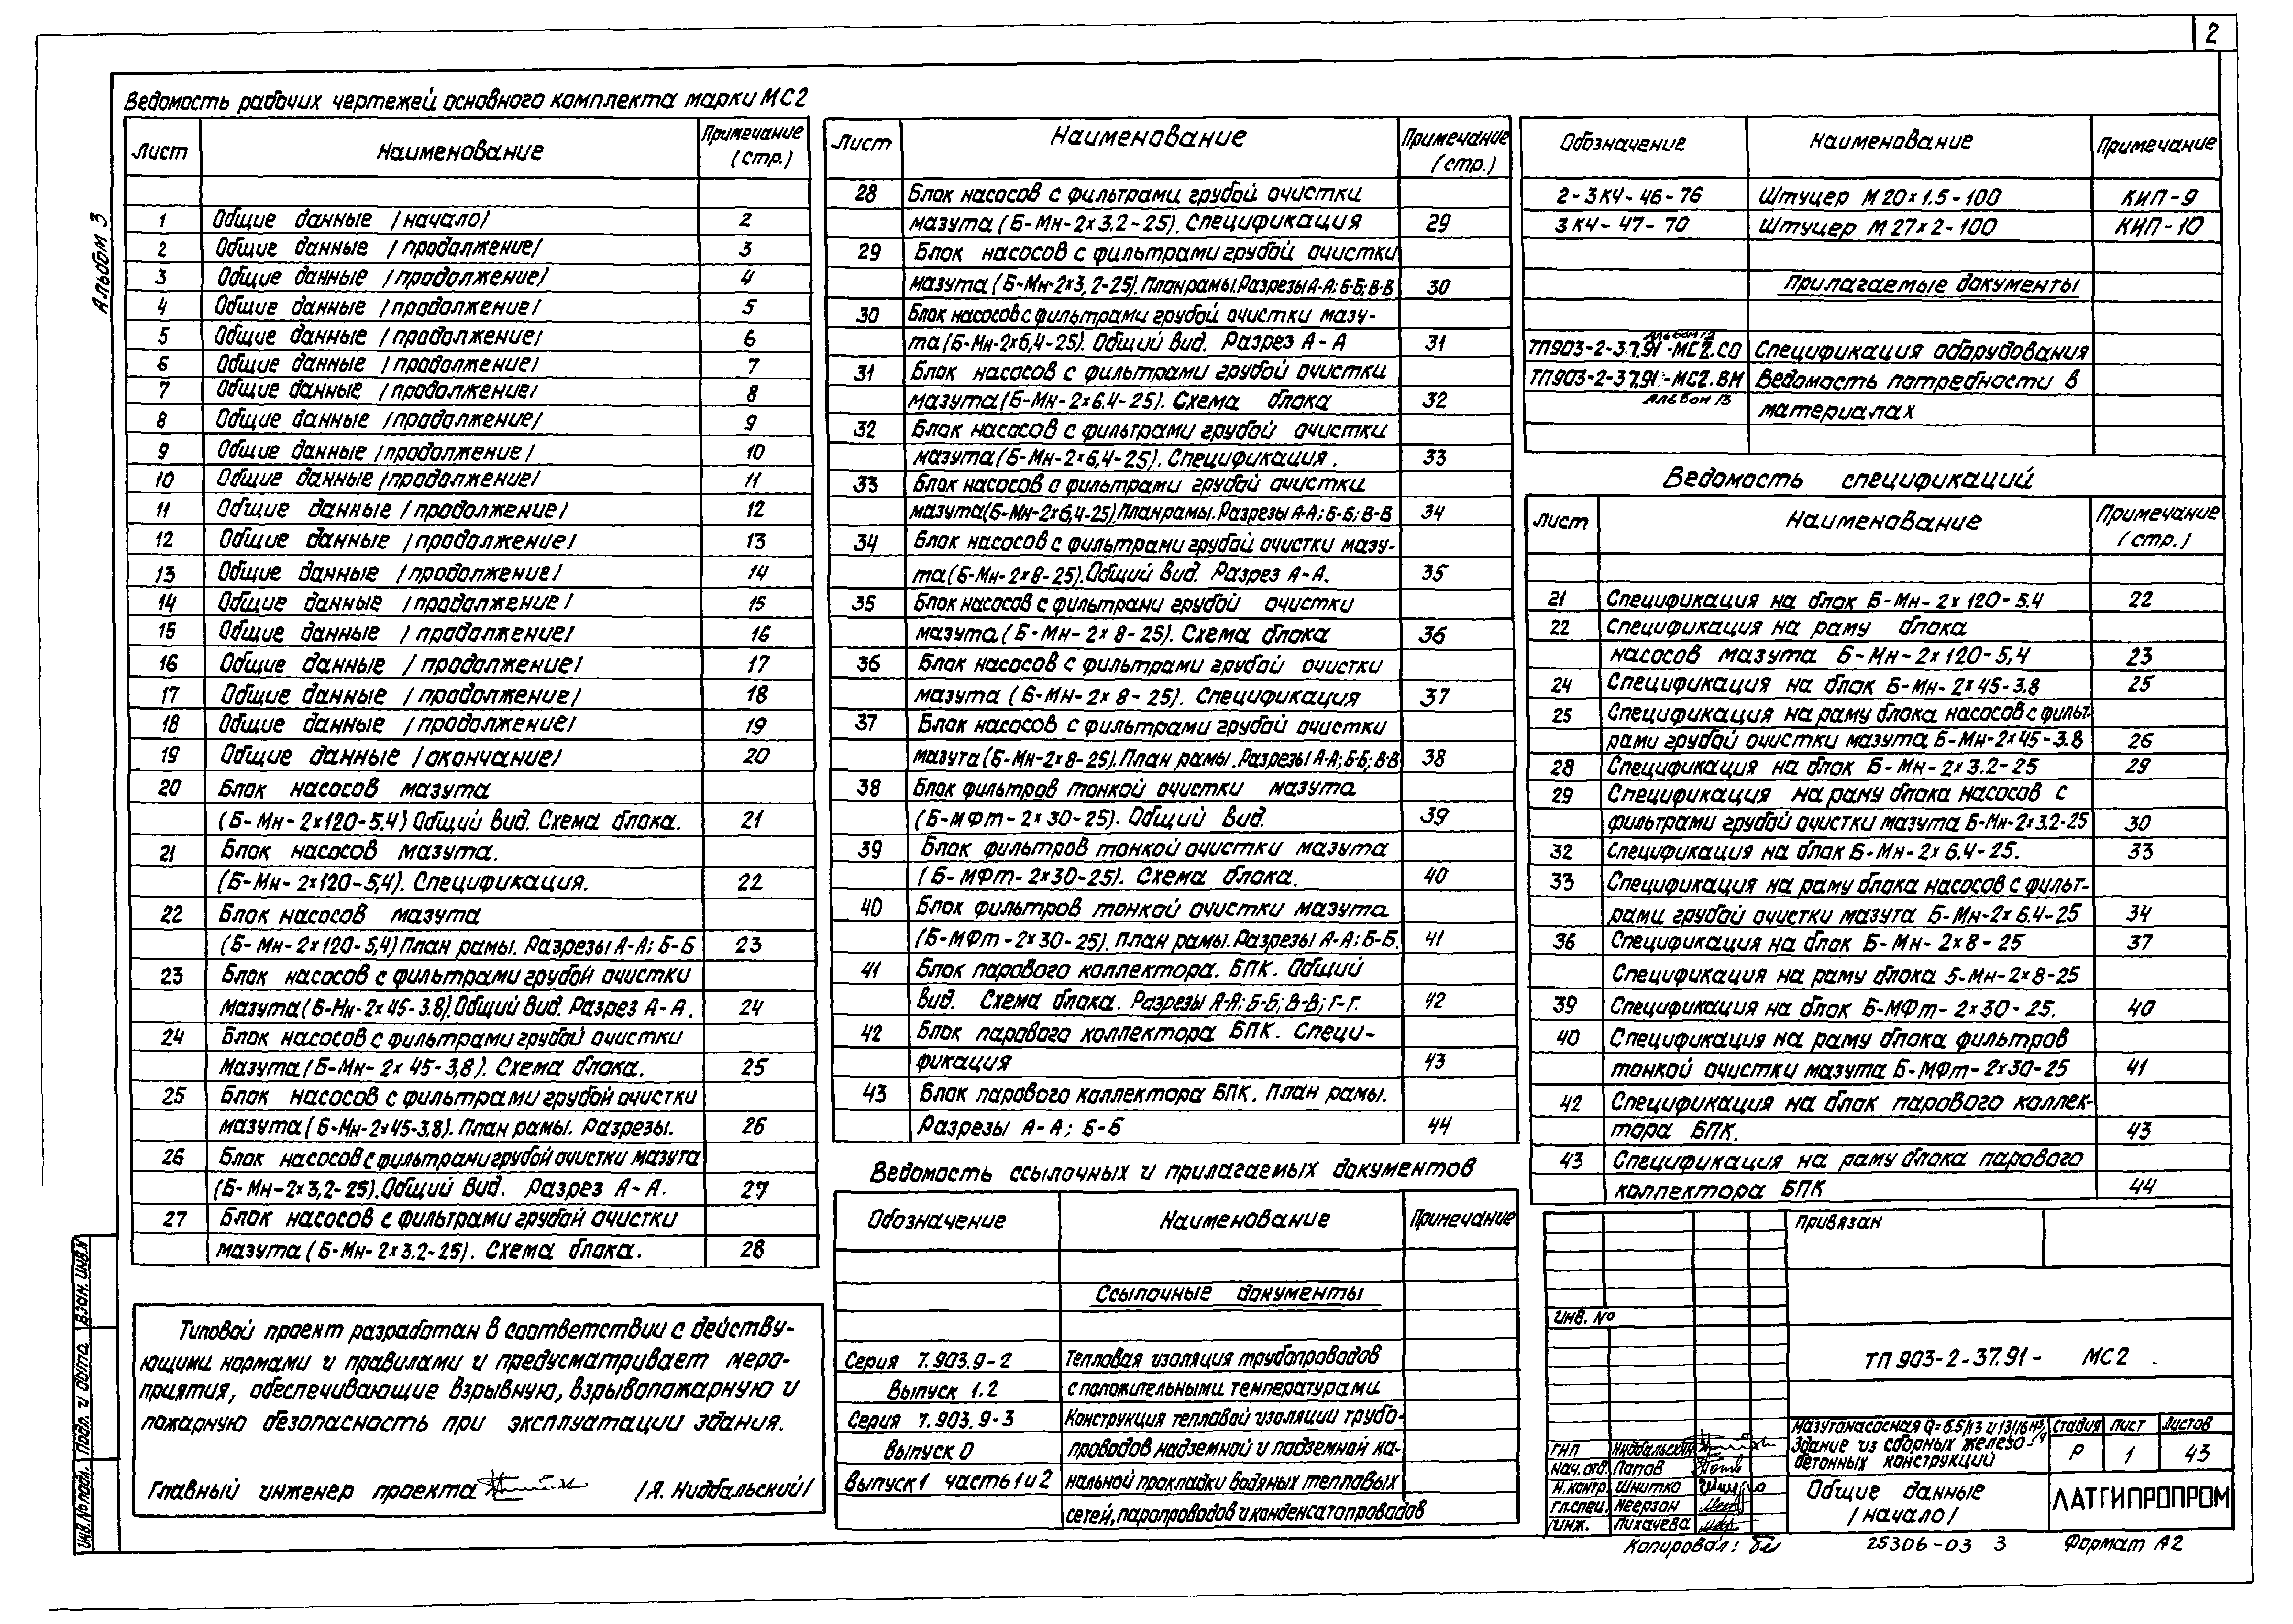 2
Альбом 3
Ведомость рабочих чертежей основного комплекта марки МС2
Лист Наименование Примечание (стр.)
1 Общие данные /начало/ 2
2 Общие данные /продолжение/ 3
3 Общие данные /продолжение/ 4
4 Общие данные /продолжение/ 5
5 Общие данные /продолжение/ 6
6 Общие данные /продолжение/ 7
7 Общие данные /продолжение/ 8
8 Общие данные /продолжение/ 9
9 Общие данные /продолжение/ 10
10 Общие данные /продолжение/ 11
11 Общие данные /продолжение/ 12
12 Общие данные /продолжение/ 13
13 Общие данные /продолжение/ 14
14 Общие данные /продолжение/ 15
15 Общие данные /продолжение/ 16
16 Общие данные /продолжение/ 17
17 Общие данные /продолжение/ 18
18 Общие данные /продолжение/ 19
19 Общие данные /окончание/ 20
20 Блок насосов мазута
(Б-Мн-2×120-5.4) Общий вид. Схема блока. 21
21 Блок насосов мазута.
(Б-Мн-2×120-5,4). Спецификация. 22
22 Блок насосов мазута
(Б-Мн-2×120-5,4) План рамы. Разрезы А-А; Б-Б 23
23 Блок насосов с фильтрами грубой очистки
мазута (Б-Мн-2×45-3.8). Общий вид. Разрез А-А. 24
24 Блок насосов с фильтрами грубой очистки
мазута (Б-Мн-2×45-3,8). Схема блока. 25
25 Блок насосов с фильтрами грубой очистки
мазута (Б-Мн-2×45-3.8). План рамы. Разрезы. 26
26 Блок насосов с фильтрами грубой очистки мазута
(Б-Мн-2×3,2-25). Общий вид. Разрез А-А. 27
27 Блок насосов с фильтрами грубой очистки
мазута (Б-Мн-2×3.2-25). Схема блока. 28
Типовой проект разработан в соответствии с действу-
ющими нормами и правилами и предусматривает меро-
приятия, обеспечивающие взрывную, взрывопожарную и
пожарную безопасность при эксплуатации здания.
Главный инженер проекта /Я. Нидбальский/
Лист Наименование Примечание (стр.)
28 Блок насосов с фильтрами грубой очистки
мазута (Б-Мн-2×3,2-25). Спецификация 29
29 Блок насосов с фильтрами грубой очистки
мазута (Б-Мн-2×3,2-25). План рамы. Разрезы А-А; Б-Б; В-В 30
30 Блок насосов с фильтрами грубой очистки мазу-
та (Б-Мн-2×6,4-25). Общий вид. Разрез А-А 31
31 Блок насосов с фильтрами грубой очистки
мазута (Б-Мн-2×6.4-25). Схема блока 32
32 Блок насосов с фильтрами грубой очистки
мазута (Б-Мн-2×6,4-25). Спецификация. 33
33 Блок насосов с фильтрами грубой очистки
мазута (Б-Мн-2×6,4-25). План рамы. Разрезы А-А; Б-Б; В-В 34
34 Блок насосов с фильтрами грубой очистки мазу-
та (Б-Мн-2×8-25). Общий вид. Разрез А-А. 35
35 Блок насосов с фильтрами грубой очистки
мазута (Б-Мн-2×8-25). Схема блока 36
36 Блок насосов с фильтрами грубой очистки
мазута (Б-Мн-2×8-25). Спецификация 37
37 Блок насосов с фильтрами грубой очистки
мазута (Б-Мн-2×8-25). План рамы. Разрезы А-А; Б-Б; В-В 38
38 Блок фильтров тонкой очистки мазута
(Б-МФт-2×30-25). Общий вид. 39
39 Блок фильтров тонкой очистки мазута
(Б-МФт-2×30-25). Схема блока. 40
40 Блок фильтров тонкой очистки мазута
(Б-МФт-2×30-25). План рамы. Разрезы А-А; Б-Б. 41
41 Блок парового коллектора. БПК. Общий
вид. Схема блока. Разрезы А-А; Б-Б; В-В; Г-Г. 42
42 Блок парового коллектора БПК. Специ-
фикация 43
43 Блок парового коллектора БПК. План рамы.
Разрезы А-А; Б-Б 44
Ведомость ссылочных и прилагаемых документов
Обозначение Наименование Примечание
Ссылочные документы
Серия 7.903.9-2 Тепловая изоляция трубопроводов
Выпуск 1.2 с положительными температурами
Серия 7.903.9-3 Конструкция тепловой изоляции трубо-
выпуск 0 проводов надземной и подземной ка-
Выпуск 1 часть 1 и 2 нальной прокладки водяных тепловых
сетей, паропроводов и конденсатопроводов
Обозначение Наименование Примечание
2-3К4-46-76 Штуцер М20×1.5-100 КИП-9
3К4-47-70 Штуцер М27×2-100 КИП-10
Прилагаемые документы
Альбом 12
ТП903-2-37.91-МС2.СО Спецификация оборудования
ТП903-2-37.91-МС2.ВМ Ведомость потребности в
Альбом 13 материалах
Ведомость спецификаций
Лист Наименование Примечание (стр.)
21 Спецификация на блок Б-Мн-2×120-5.4 22
22 Спецификация на раму блока
насосов мазута Б-Мн-2×120-5,4 23
24 Спецификация на блок Б-Мн-2×45-3.8 25
25 Спецификация на раму блока насосов с фильт-
рами грубой очистки мазута Б-Мн-2×45-3.8 26
28 Спецификация на блок Б-Мн-2×3.2-25 29
29 Спецификация на раму блока насосов с
фильтрами грубой очистки мазута Б-Мн-2×3.2-25 30
32 Спецификация на блок Б-Мн-2×6.4-25. 33
33 Спецификация на раму блока насосов с фильт-
рами грубой очистки мазута Б-Мн-2×6.4-25 34
36 Спецификация на блок Б-Мн-2×8-25 37
Спецификация на раму блока Б-Мн-2×8-25
39 Спецификация на блок Б-МФт-2×30-25. 40
40 Спецификация на раму блока фильтров
тонкой очистки мазута Б-МФт-2×30-25 41
42 Спецификация на блок парового коллек-
тора БПК. 43
43 Спецификация на раму блока парового
коллектора БПК 44
привязан
инв. №
ТП 903-2-37.91- МС2
Мазутонасосная Q=6.5/13 и 13/16 м³/ч
Здание из сборных железо-
бетонных конструкций
стадия лист листов
Р 1 43
ГИП Нидбальский
Нач. отд. Попов
Н.контр. Шнитко
гл.спец. Меерзон
инж. Лихачева
Общие данные
/начало/
ЛАТГИПРОПРОМ
Копировал:
25306-03 3
Формат А2
Взам. инв.№
Подп. и дата
Инв. № подл.